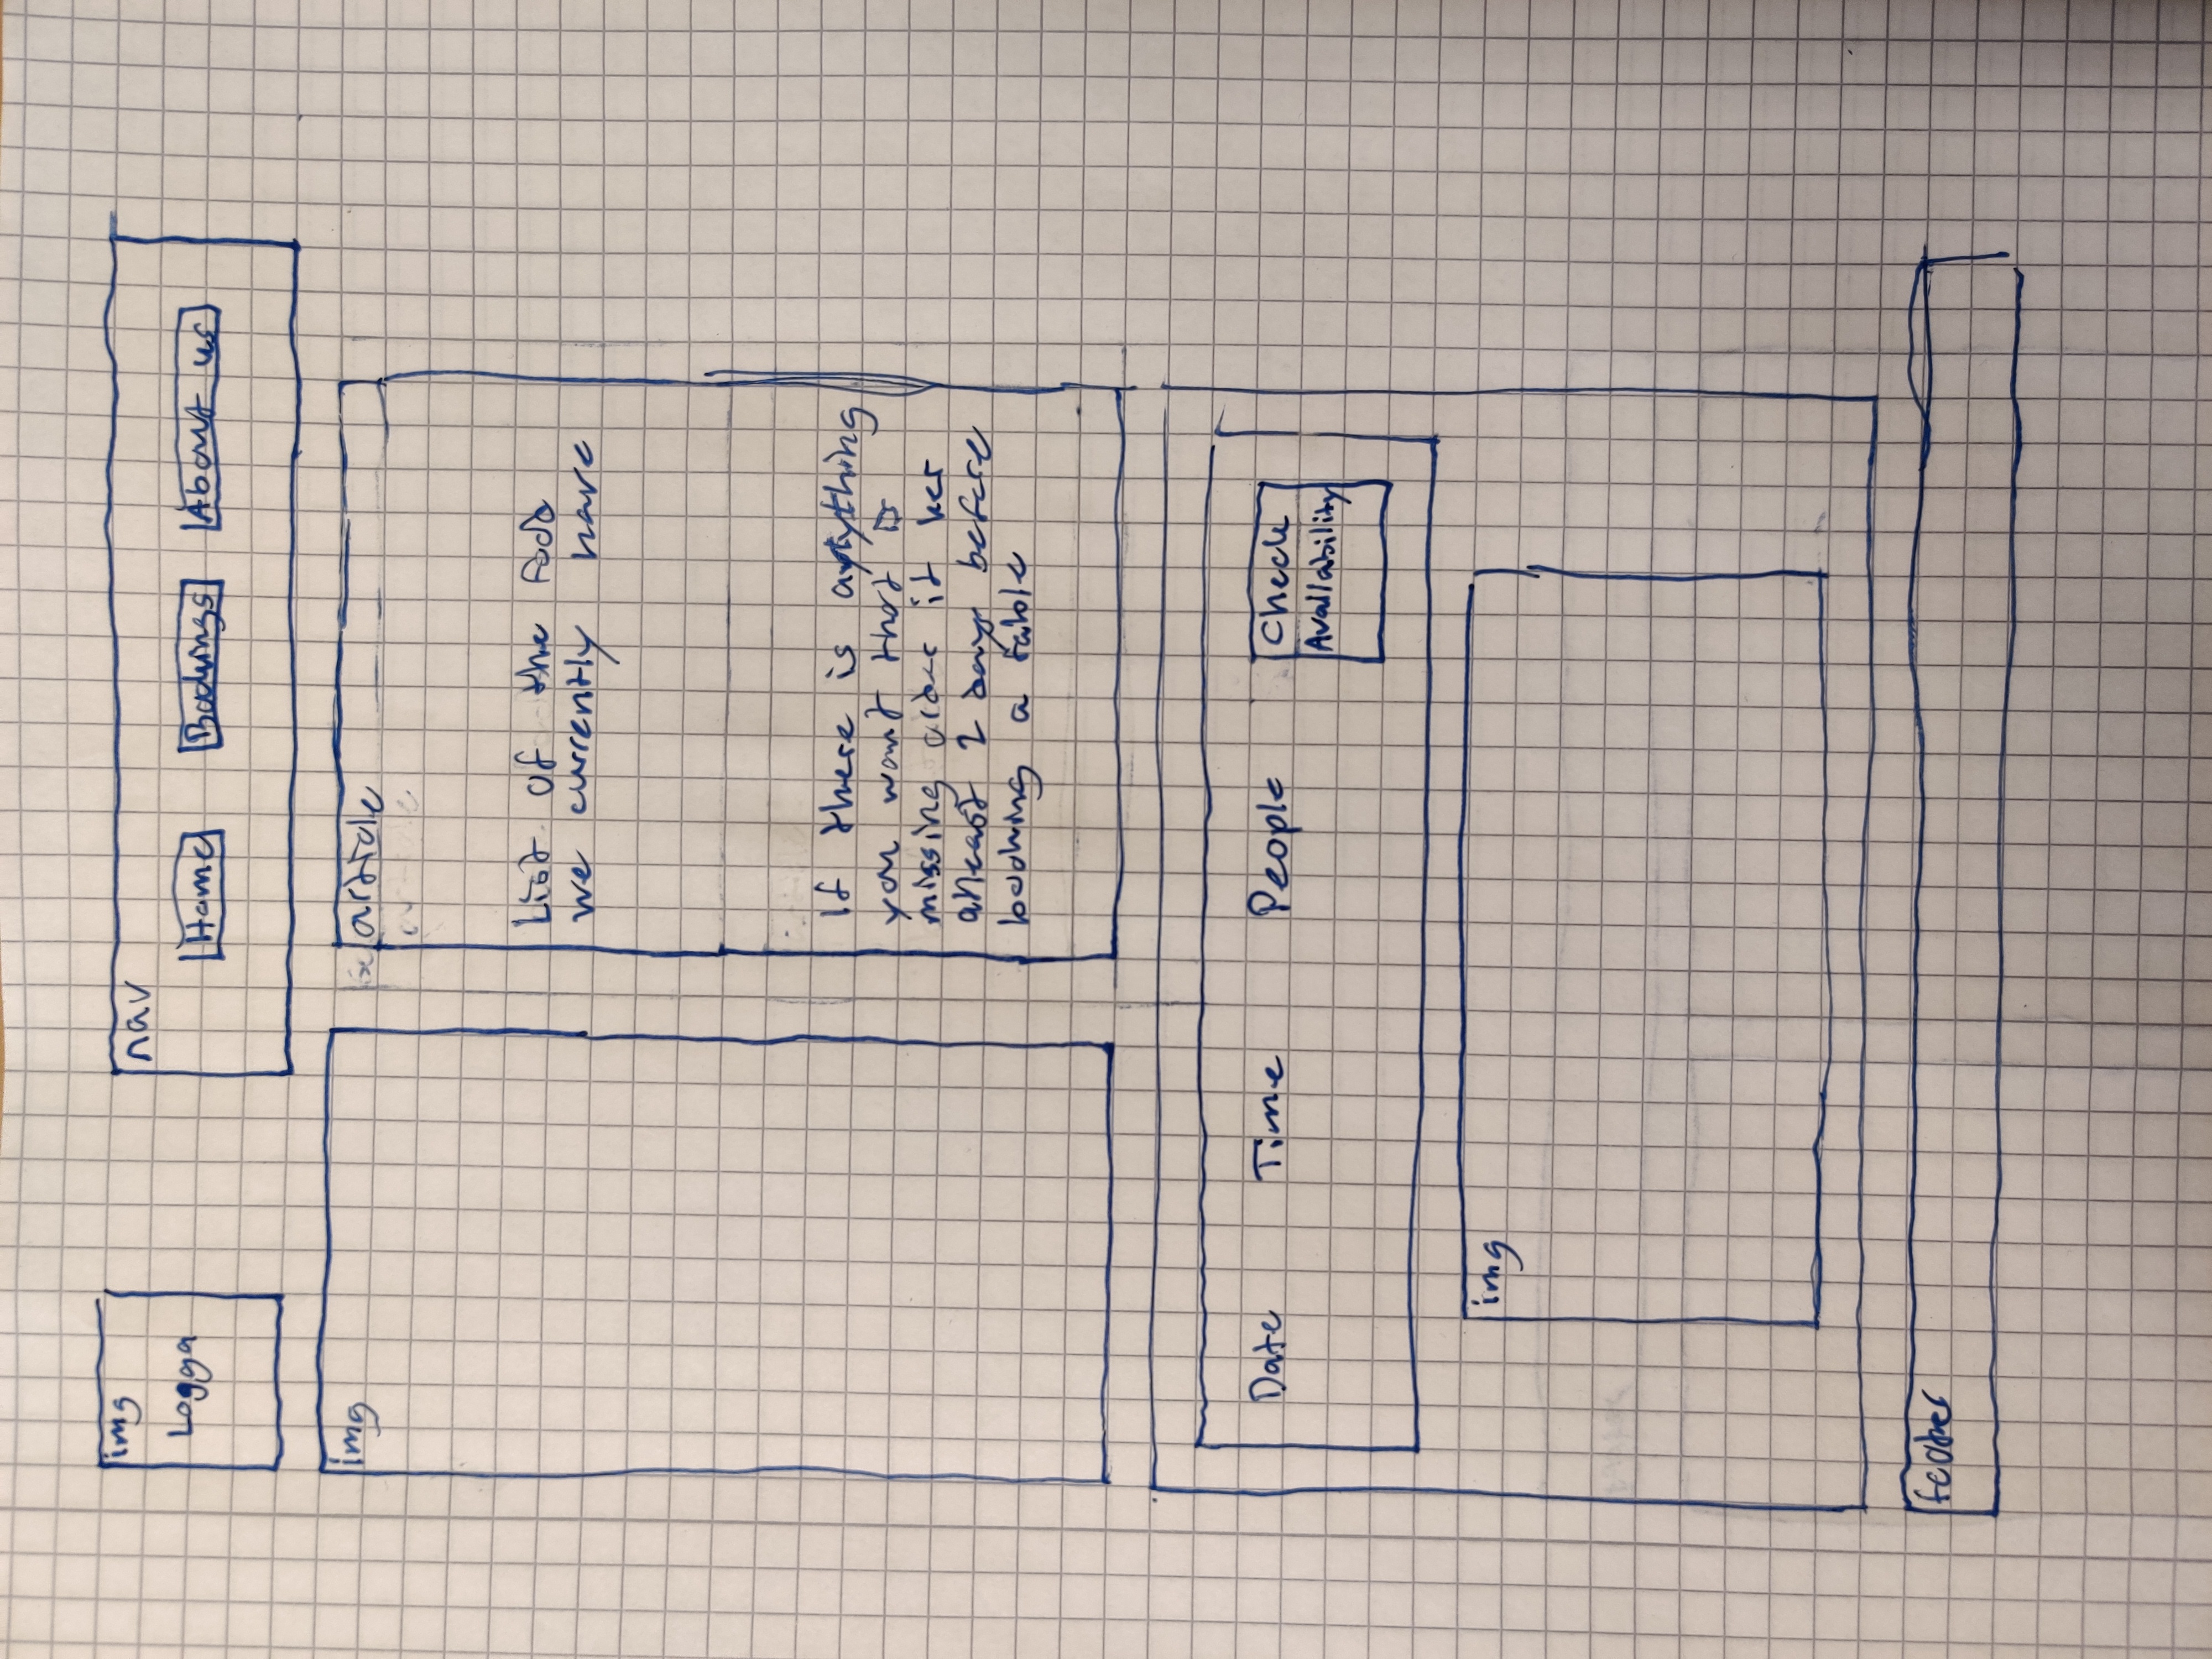 img
Logga
nav
Home Bookings About us
img
article
List of the food
we currently have
If there is anything
you want that is
missing order it her
atleast 2 days before
booking a table
Date Time People Check
Availability
img
footer